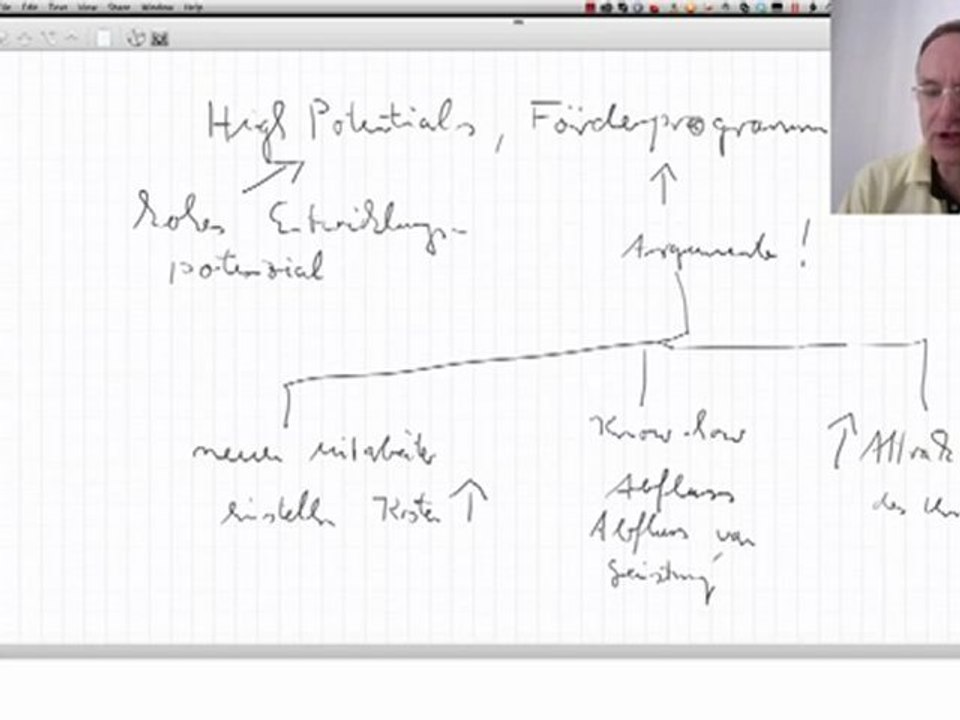 File Edit Text View Share Window Help
High Potentials, Förderprogramm
hohes Entwicklungs-
potenzial
Argumente!
neuen Mitarbeiter
einstellen Kosten ↑
Know-how
Abfluss
Abfluss von
Leistung
↑ Attrak
des Un